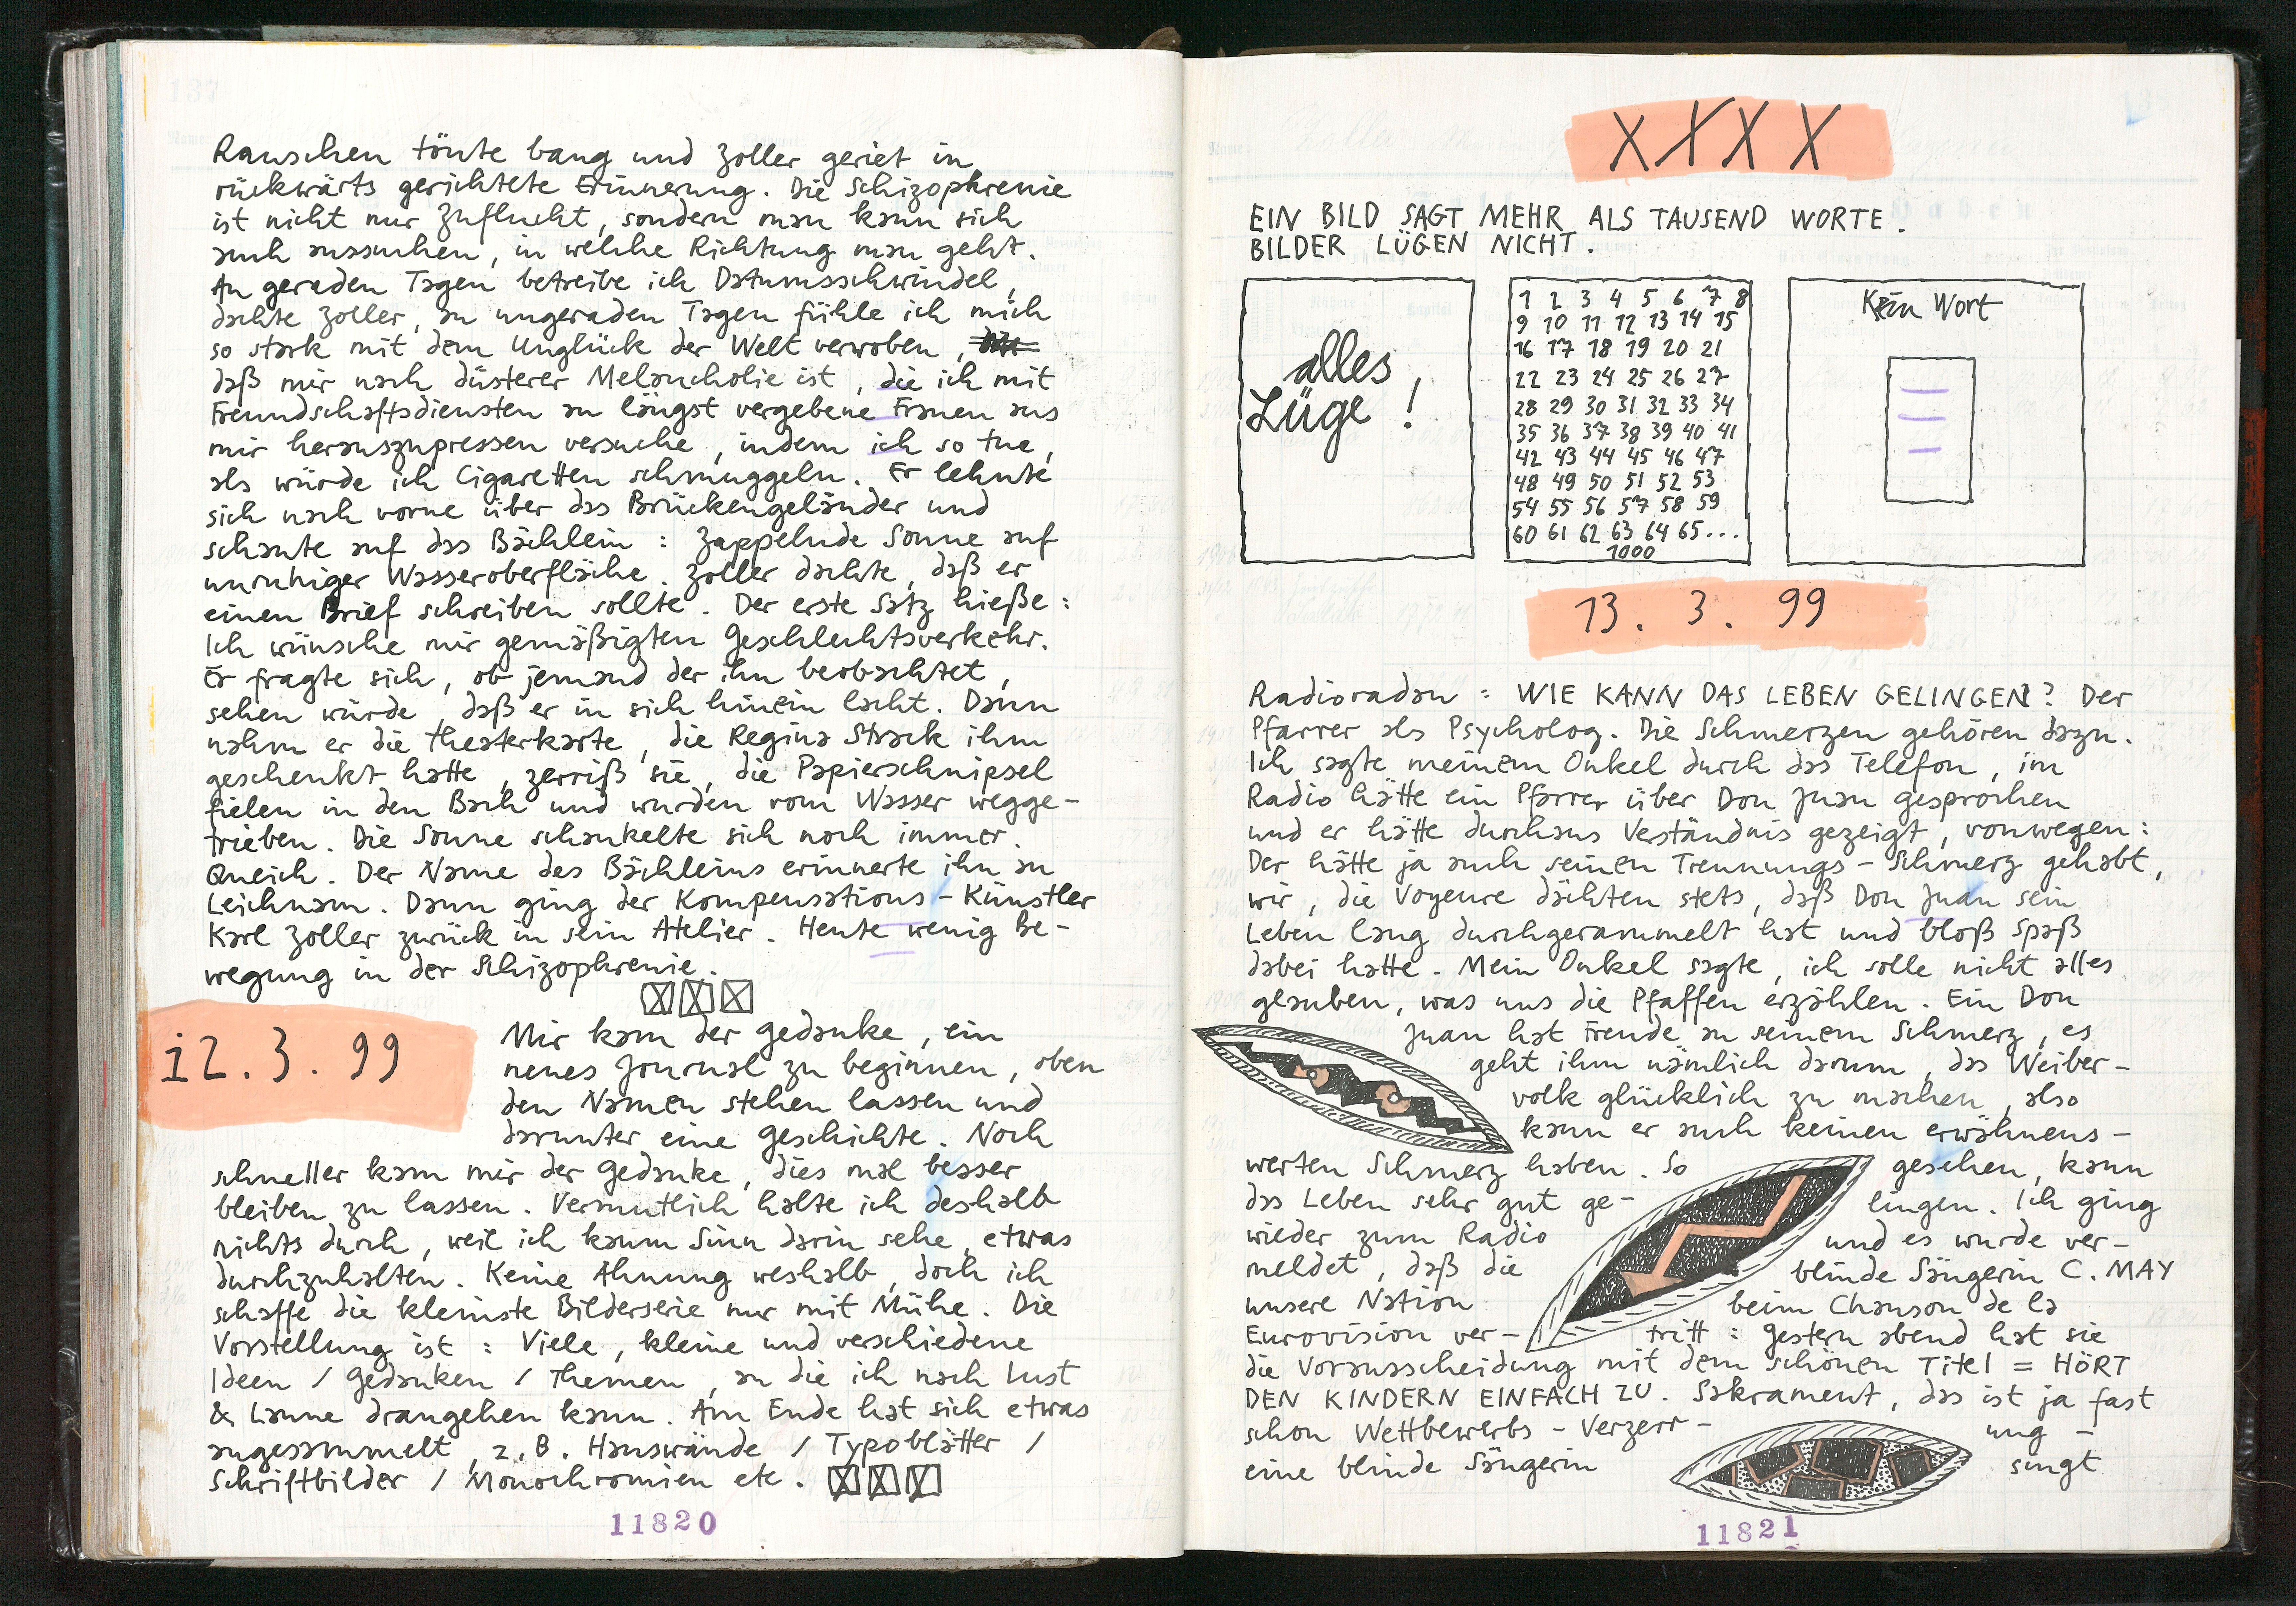 Rauschen tönte bang und Zoller geriet in
rückwärts gerichtete Erinnerung. Die Schizophrenie
ist nicht nur Zuflucht, sondern man kann sich
auch aussuchen, in welche Richtung man geht.
An geraden Tagen betreibe ich Datumsschwindel,
dachte Zoller, an ungeraden Tagen fühle ich mich
so stark mit dem Unglück der Welt verwoben,
daß mir nach düsterer Melancholie ist, die ich mit
Freundschaftsdiensten an längst vergebene Frauen aus
mir herauszupressen versuche, indem ich so tue,
als würde ich Cigaretten schmuggeln. Er lehnte
sich nach vorne über das Brückengeländer und
schaute auf das Bächlein : Zappelnde Sonne auf
unruhiger Wasseroberfläche. Zoller dachte, daß er
einen Brief schreiben sollte. Der erste Satz hieße :
Ich wünsche mir gemäßigten Geschlechtsverkehr.
Er fragte sich, ob jemand der ihn beobachtet,
sehen würde, daß er in sich hinein lacht. Dann
nahm er die Theaterkarte, die Regina Strack ihm
geschenkt hatte, zerriß sie, die Papierschnipsel
fielen in den Bach und wurden vom Wasser wegge-
trieben. Die Sonne schaukelte sich noch immer.
Queich. Der Name des Bächleins erinnerte ihn an
Leichnam. Dann ging der Kompensations-Künstler
Karl Zoller zurück in sein Atelier. Heute wenig Be-
wegung in der Schizophrenie.
12. 3. 99
Mir kam der Gedanke, ein
neues Journal zu beginnen, oben
den Namen stehen lassen und
darunter eine Geschichte. Noch
schneller kam mir der Gedanke, dies mal besser
bleiben zu lassen. Vermutlich halte ich deshalb
nichts durch, weil ich kaum Sinn darin sehe, etwas
durchzuhalten. Keine Ahnung weshalb, doch ich
schaffe die kleinste Bilderserie nur mit Mühe. Die
Vorstellung ist : Viele, kleine und verschiedene
Ideen / Gedanken / Themen, an die ich nach Lust
& Laune drangehen kann. Am Ende hat sich etwas
angesammelt, z.B. Hauswände / Typoblätter /
Schriftbilder / Monochromien etc.
11820
XXXX
EIN BILD SAGT MEHR ALS TAUSEND WORTE.
BILDER LÜGEN NICHT.
alles
Lüge !
1 2 3 4 5 6 7 8
9 10 11 12 13 14 15
16 17 18 19 20 21
22 23 24 25 26 27
28 29 30 31 32 33 34
35 36 37 38 39 40 41
42 43 44 45 46 47
48 49 50 51 52 53
54 55 56 57 58 59
60 61 62 63 64 65...
1000
Kein Wort
13. 3. 99
Radioradau : WIE KANN DAS LEBEN GELINGEN? Der
Pfarrer als Psycholog. Die Schmerzen gehören dazu.
Ich sagte meinem Onkel durch das Telefon, im
Radio hätte ein Pfarrer über Don Juan gesprochen
und er hätte durchaus Verständnis gezeigt, vonwegen :
Der hätte ja auch seinen Trennungs-Schmerz gehabt,
wir, die Voyeure dächten stets, daß Don Juan sein
Leben lang durchgerammelt hat und bloß Spaß
dabei hatte. Mein Onkel sagte, ich solle nicht alles
glauben, was uns die Pfaffen erzählen. Ein Don
Juan hat Freude an seinem Schmerz, es
geht ihm nämlich darum, das Weiber-
volk glücklich zu machen, also
kann er auch keinen erwähnens-
werten Schmerz haben. So gesehen, kann
das Leben sehr gut ge- lingen. Ich ging
wieder zum Radio und es wurde ver-
meldet, daß die blinde Sängerin C. MAY
unsere Nation beim Chanson de la
Eurovision ver- tritt : Gestern abend hat sie
die Vorausscheidung mit dem schönen Titel = HÖRT
DEN KINDERN EINFACH ZU. Sakrament, das ist ja fast
schon Wettbewerbs-Verzerr- ung -
eine blinde Sängerin singt
11821